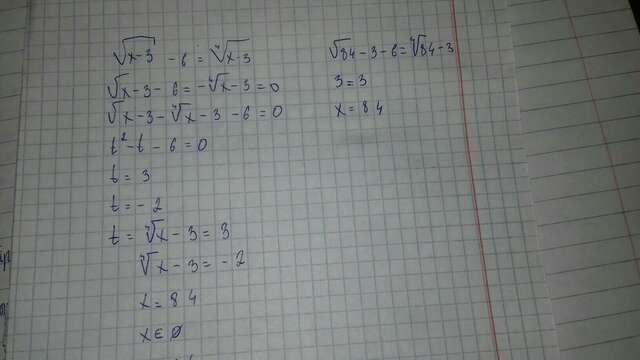 √x-3 - 6 = ∜x-3
√x-3 - 6 = -∜x-3 = 0
√x-3 - ∜x-3 - 6 = 0
t² - t - 6 = 0
t = 3
t = -2
t = ∜x-3 = 3
∜x-3 = -2
x = 84
x ∈ ∅
√84-3-6 = ∜84-3
3 = 3
x = 84